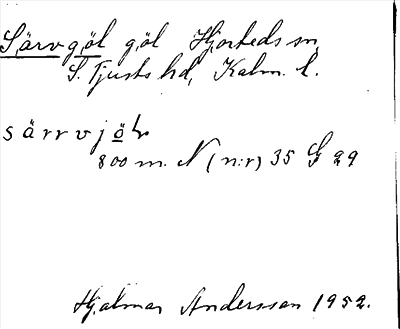 Särvgöl göl Hjorteds sn,
S. Tjusts hd, Kalm. l.
särrvjö̱l
800 m. N (n:r) 35 G 29
Hjalmar Andersson 1952.